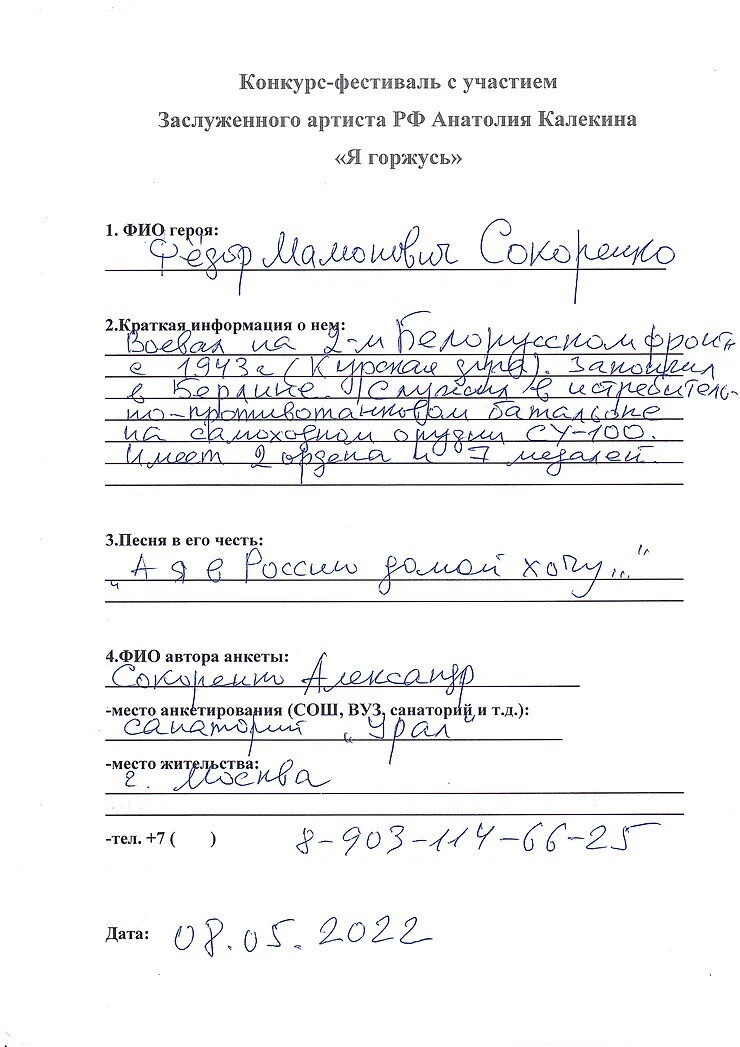 Конкурс-фестиваль с участием
Заслуженного артиста РФ Анатолия Калекина
«Я горжусь»
1. ФИО героя:
Фёдор Мамонович Сокоренко
2.Краткая информация о нем:
Воевал на 2-м Белорусском фронте
с 1943г (Курская дуга). Закончил
в Берлине. Служил в истребитель-
но-противотанковом батальоне
на самоходном орудии СУ-100.
Имеет 2 ордена и 7 медалей.
3.Песня в его честь:
„А я в Россию домой хочу..."
4.ФИО автора анкеты:
Сокоренко Александр
-место анкетирования (СОШ, ВУЗ, санаторий и т.д.):
санаторий „Урал"
-место жительства:
г. Москва
-тел. +7 ( ) 8-903-114-66-25
Дата: 08.05.2022